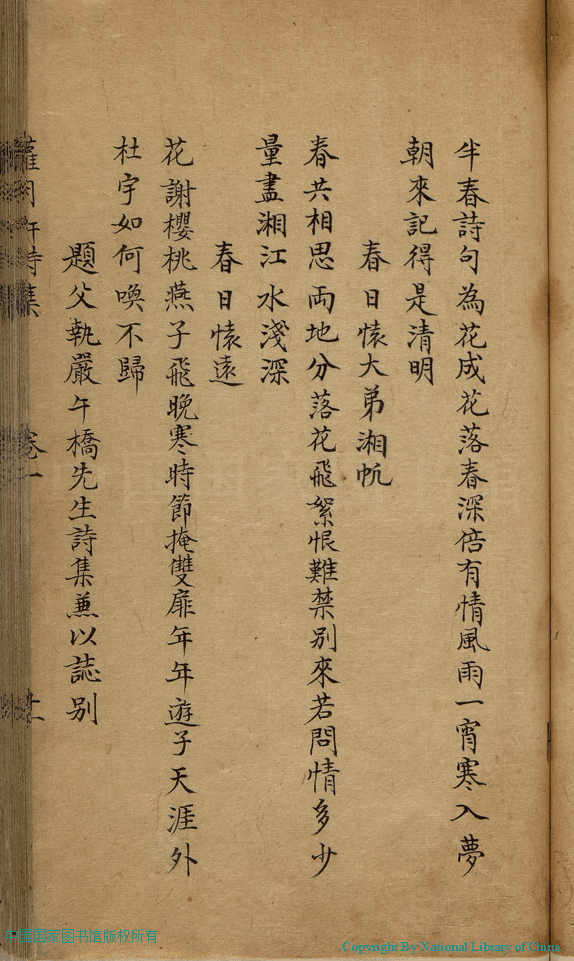 半春詩句為花成花落春深倍有情風雨一宵寒入夢
朝來記得是清明
春日懷大弟湘帆
春共相思兩地分落花飛絮恨難禁別來若問情多少
量盡湘江水淺深
春日懷遠
花謝櫻桃燕子飛晚寒時節掩雙扉年年遊子天涯外
杜宇如何喚不歸
題父執嚴午橋先生詩集兼以誌別
卷一
中国国家图书馆版权所有
Copyright By National Library of China